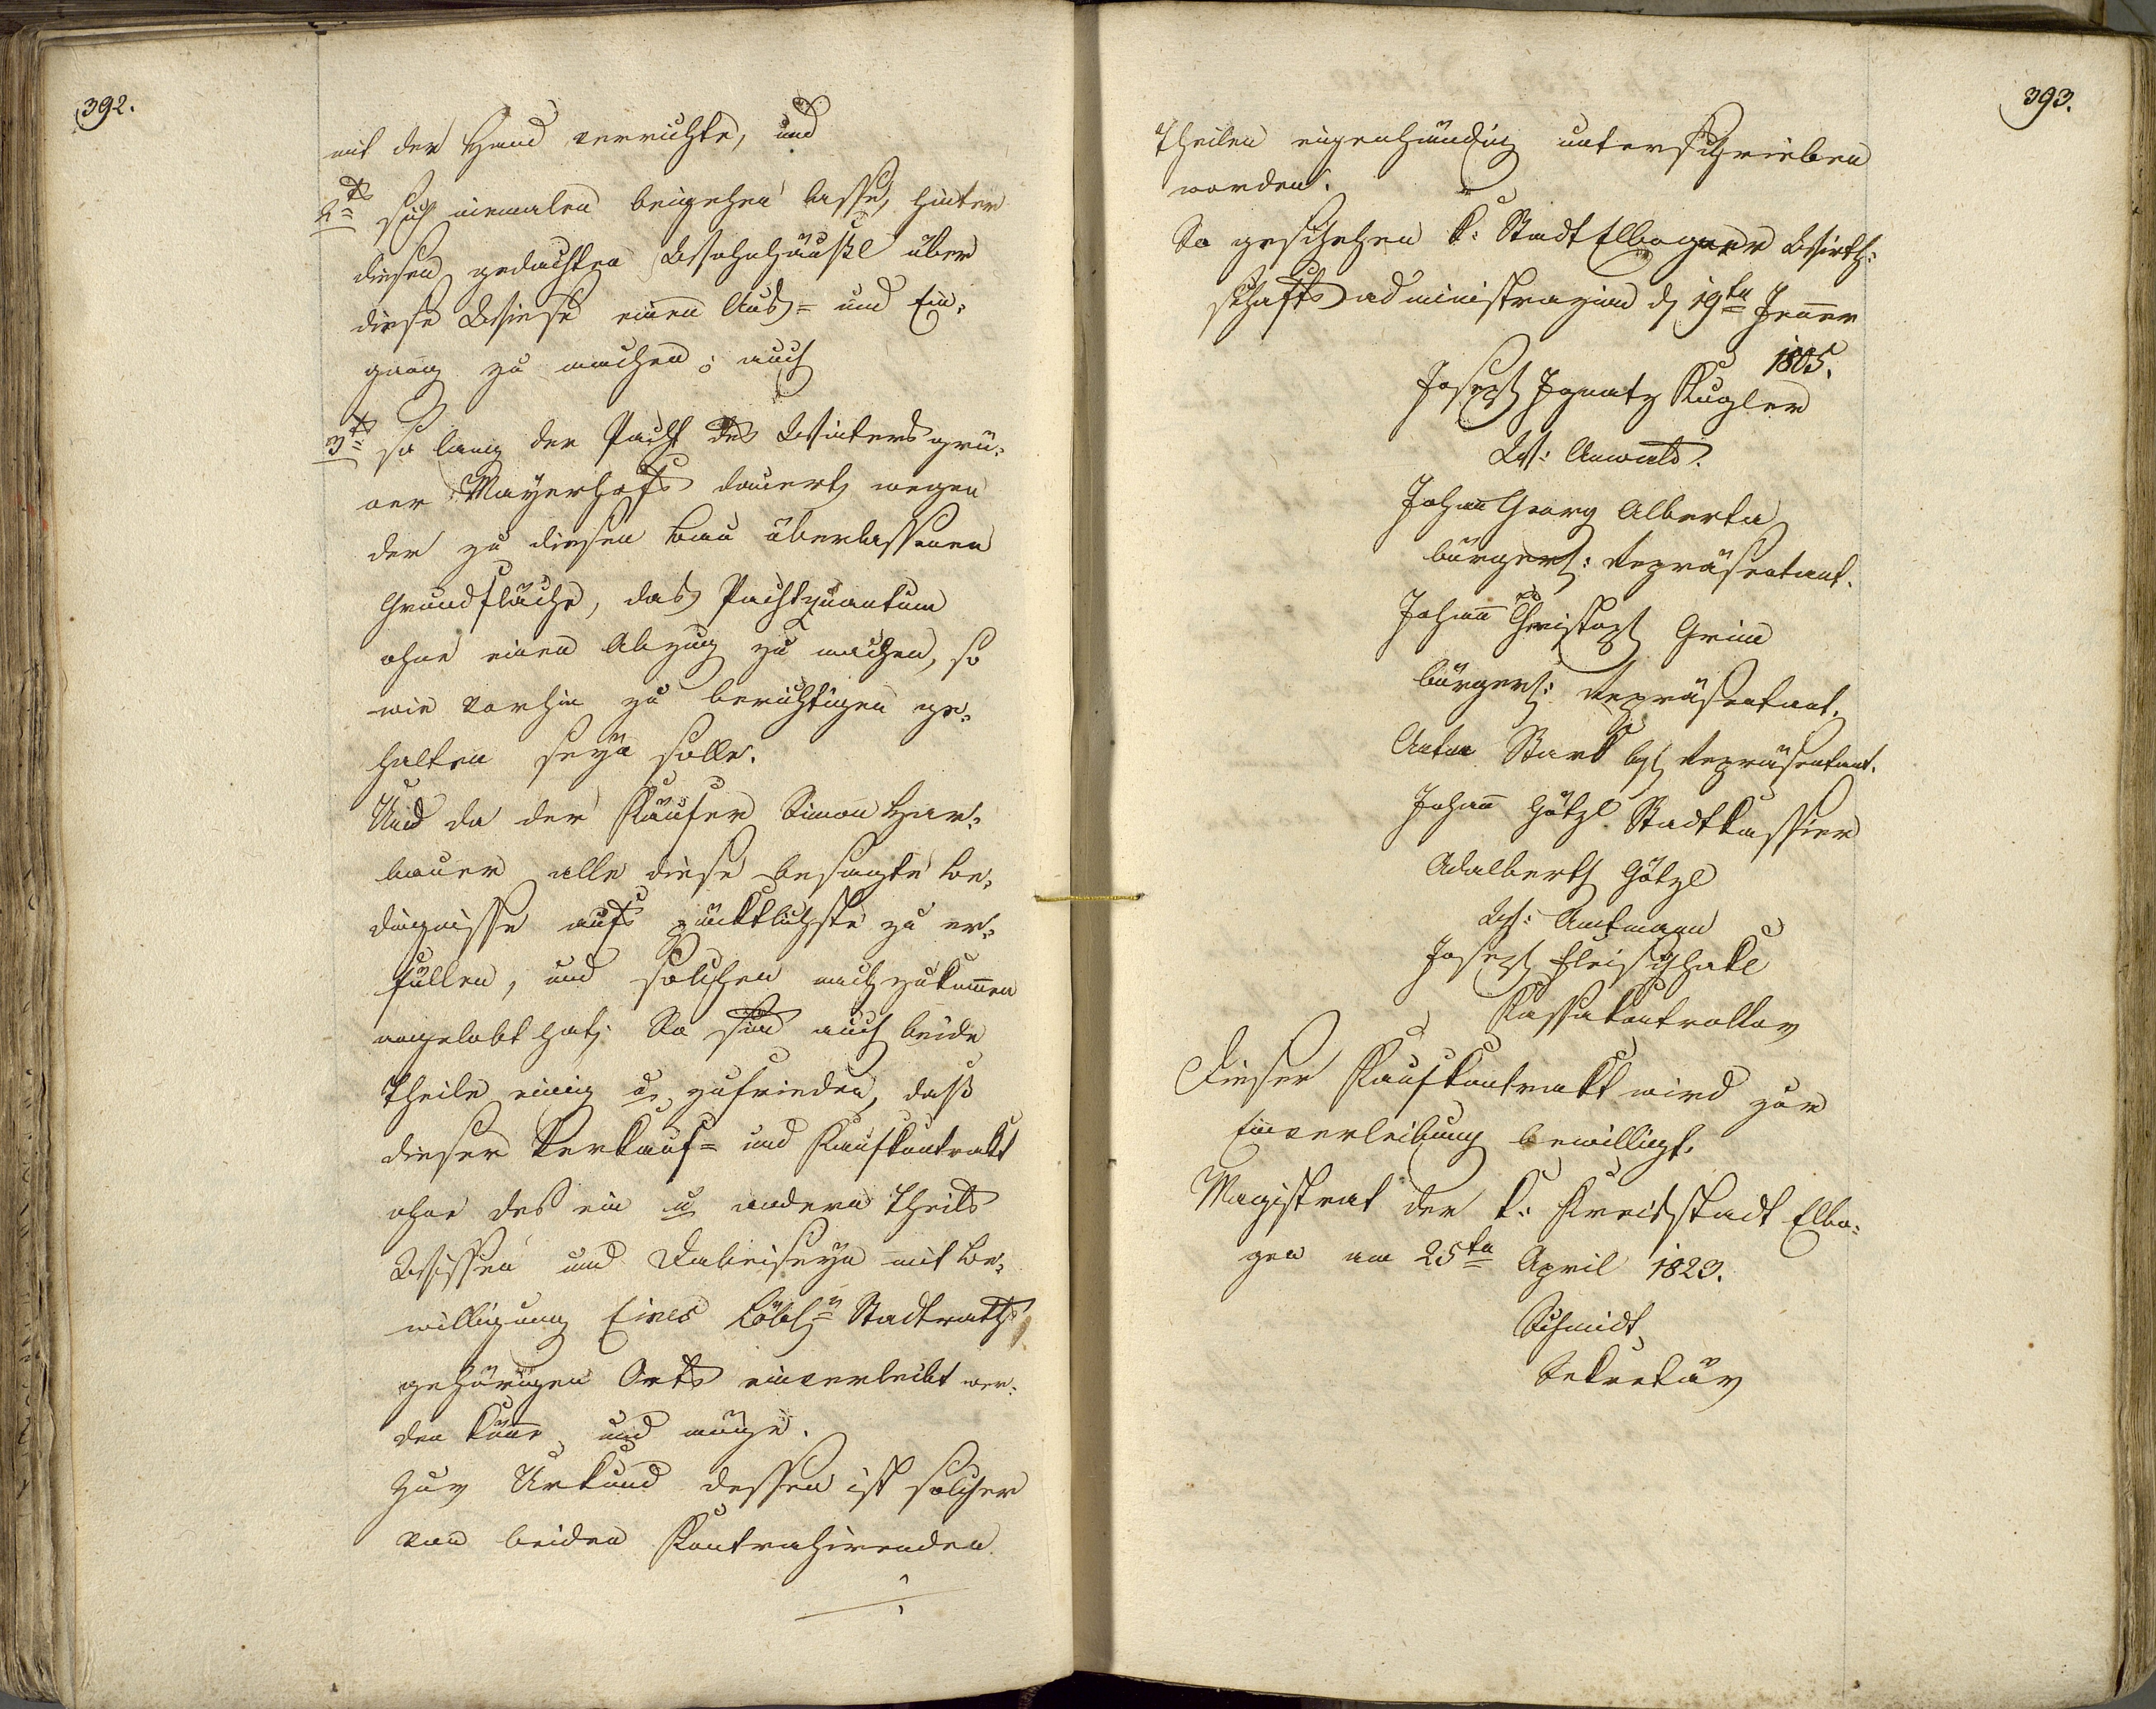 392.
mit der Hand verrichte, und
2tens sich niemalen beigehen lasse, hinter
diesen gedachten Wohnhäußl über
diese Wiese einen Aus= und Ein-
gang zu machen; auch
3tens so lang der Pacht des Wintersgrü-
ner Mayerhofs dauert, wegen
der zu diesen Bau überlassenen
Grundfläche, das Pachtquantum
ohne einen Abzug zu machen, so
wie vorhin zu berichtigen ge-
halten seyn solle.
Und da der Käufer Simon Har-
bauer alle diese besagte Be-
dingnisse aufs pünktlichste zu er-
füllen, und solchen nachzukom̄en
angelobt hat; So sind auch beide
Theile einig u. zufrieden, daß
dieser Verkauf= und Kaufkontrakt
ohne des ein u. andern Theils
Wissen und Dabeiseyn mit Be-
willigung Eines Löbl. Stadtraths
gehörigen Orts einverleibt wer-
den kön̄e, und möge.
Zur Urkund dessen ist solcher
von beiden Kontrahirenden
393.
Theilen eigenhändig unterschrieben
worden.
So geschehen k: Stadt Elbogner Wirth-
schaftsadministrazion d. 19ten Jen̄er
1805.
Joseph Ignatz Kugler
W: Anwald.
Johann Georg Alberta
bürgerl: Repräsentant.
Johan̄ Christoph Grim
bürgerl: Repräsentant.
Anton Stark bgl Repräsentant.
Johan̄ Götzl Stadtkassier
Adalbert Götzl
W: Amtmann
Joseph Fleischhakl
Kassakontrollor
Dieser Kaufkontrakt wird zur
Einverleibung bewilligt.
Magistrat der k: Kreisstadt Elbo-
gen am 25ten April 1823.
Schmidt
Sekretär